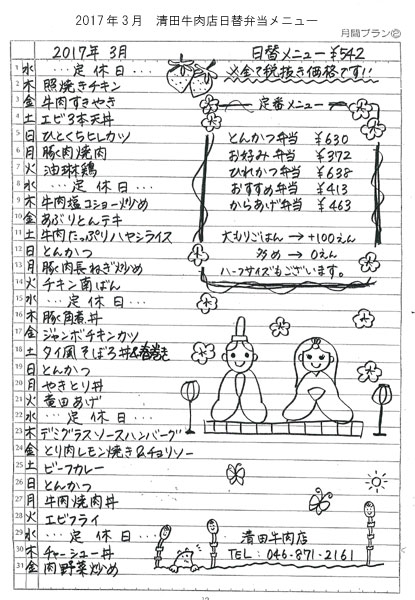 2017年3月　清田牛肉店日替弁当メニュー
月間プラン②
2017年 3月
日替メニュー ¥542
※全て税抜き価格です!!
1 水 …定休日…
2 木 照焼きチキン
3 金 牛肉すきやき
4 土 エビ3本天丼
5 日 ひとくちヒレカツ
6 月 豚く肉焼肉
7 火 油琳鶏
8 水 …定休日…
9 木 牛肉塩コショー炒め
10 金 あぶりとんテキ
11 土 牛肉たっぷりハヤシライス
12 日 とんかつ
13 月 豚肉長ねぎ炒め
14 火 チキン南ばん
15 水 …定休日…
16 木 豚角煮丼
17 金 ジャンボチキンカツ
18 土 タイ風そぼろ丼&春巻き
19 日 とんかつ
20 月 やきとり丼
21 火 竜田あげ
22 水 …定休日…
23 木 デミグラスソースハンバーグ
24 金 とり肉レモン焼き&チョリソー
25 土 ビーフカレー
26 日 とんかつ
27 月 牛肉焼肉丼
28 火 エビフライ
29 水 …定休日…
30 木 チャーシュー丼
31 金 肉野菜炒め
定番メニュー
とんかつ弁当 ¥630
お好み弁当 ¥372
ひれかつ弁当 ¥638
おすすめ弁当 ¥413
からあげ弁当 ¥463
大もりごはん → +100えん
少め → 0えん
ハーフサイズもございます。
清田牛肉店
TEL: 046-871-2161